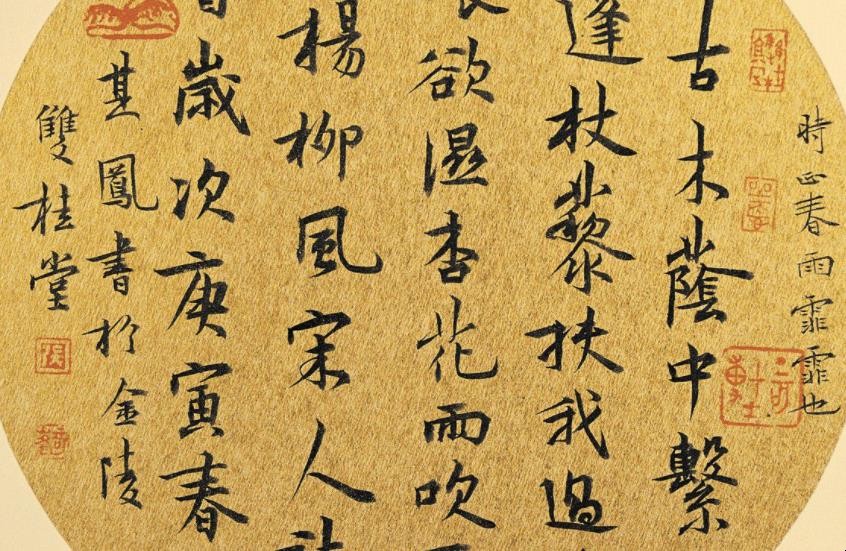 時正春雨霏霏也
古木蔭中繫
逢杖藜扶我過
欲濕杏花雨吹
楊柳風宋人
歲次庚寅春
其鳳書於金陵
雙桂堂